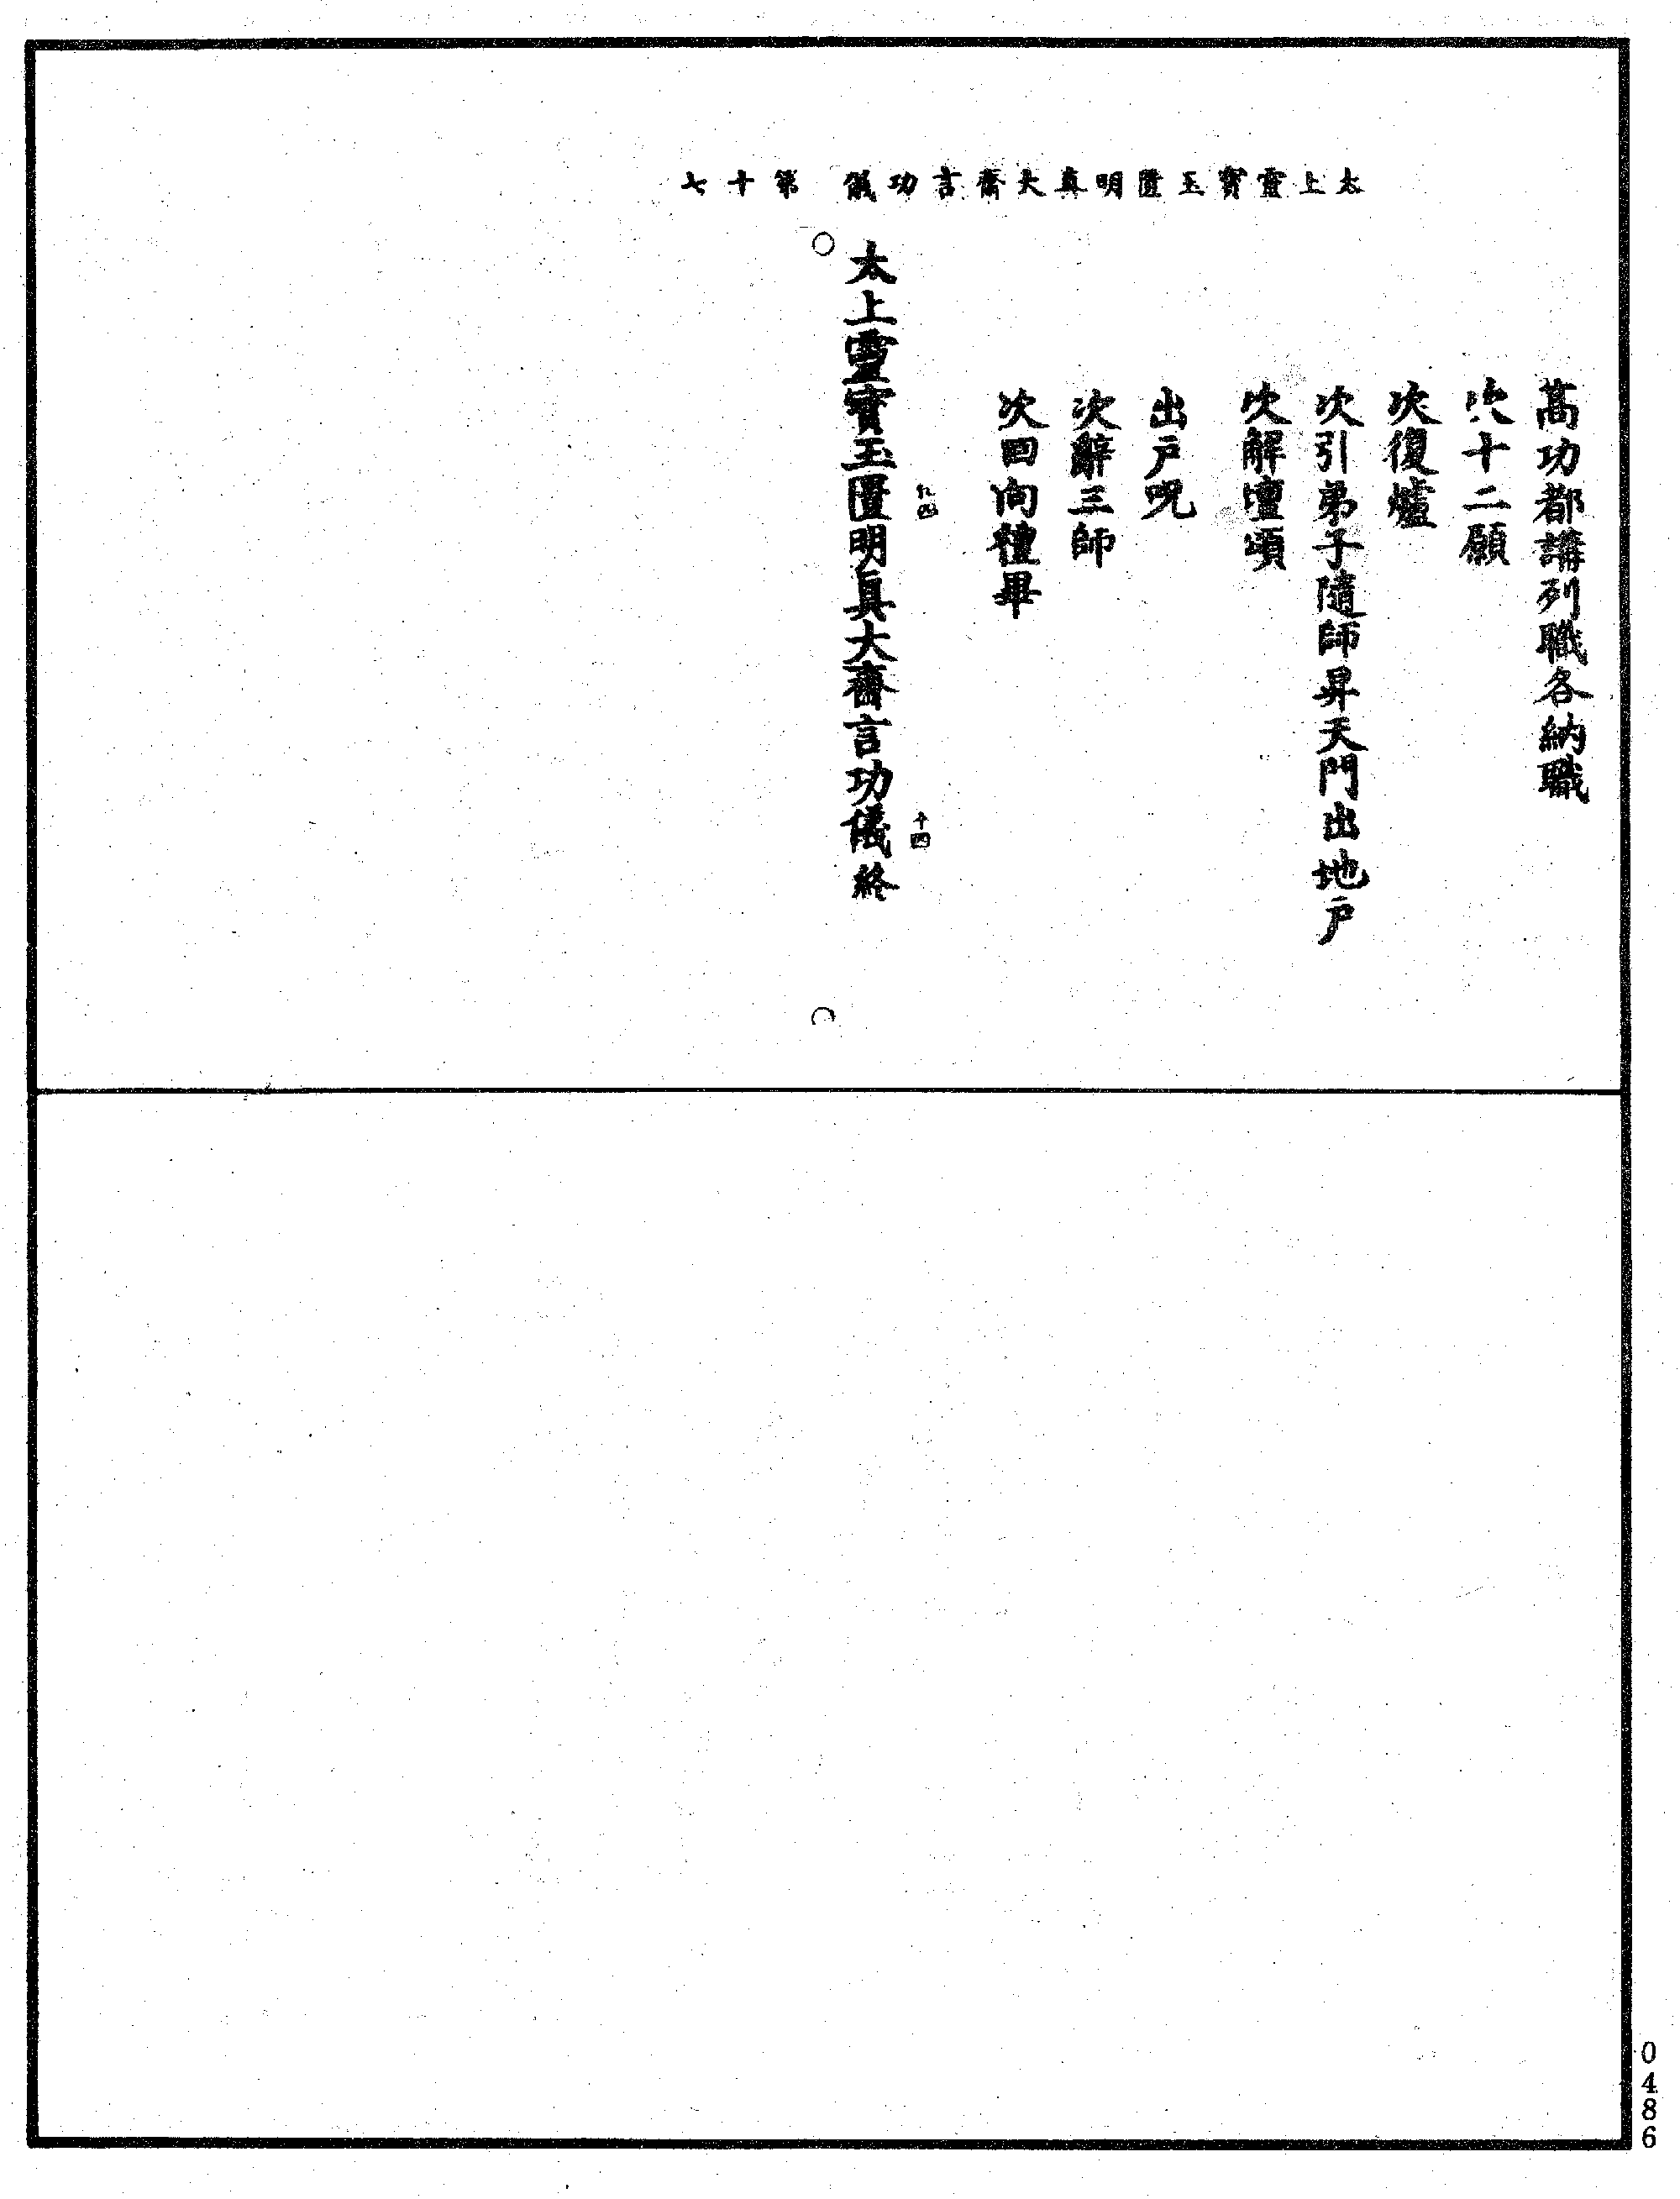 太上靈寶玉匱明真大齋言功儀 第十七
高功都講列職各納職
次十二願
次復爐
次引弟子隨師昇天門出地戶
次解壇頌
出戶呪
次辭三師
次回向禮畢
九四
十四
太上靈寶玉匱明真大齋言功儀終
0486